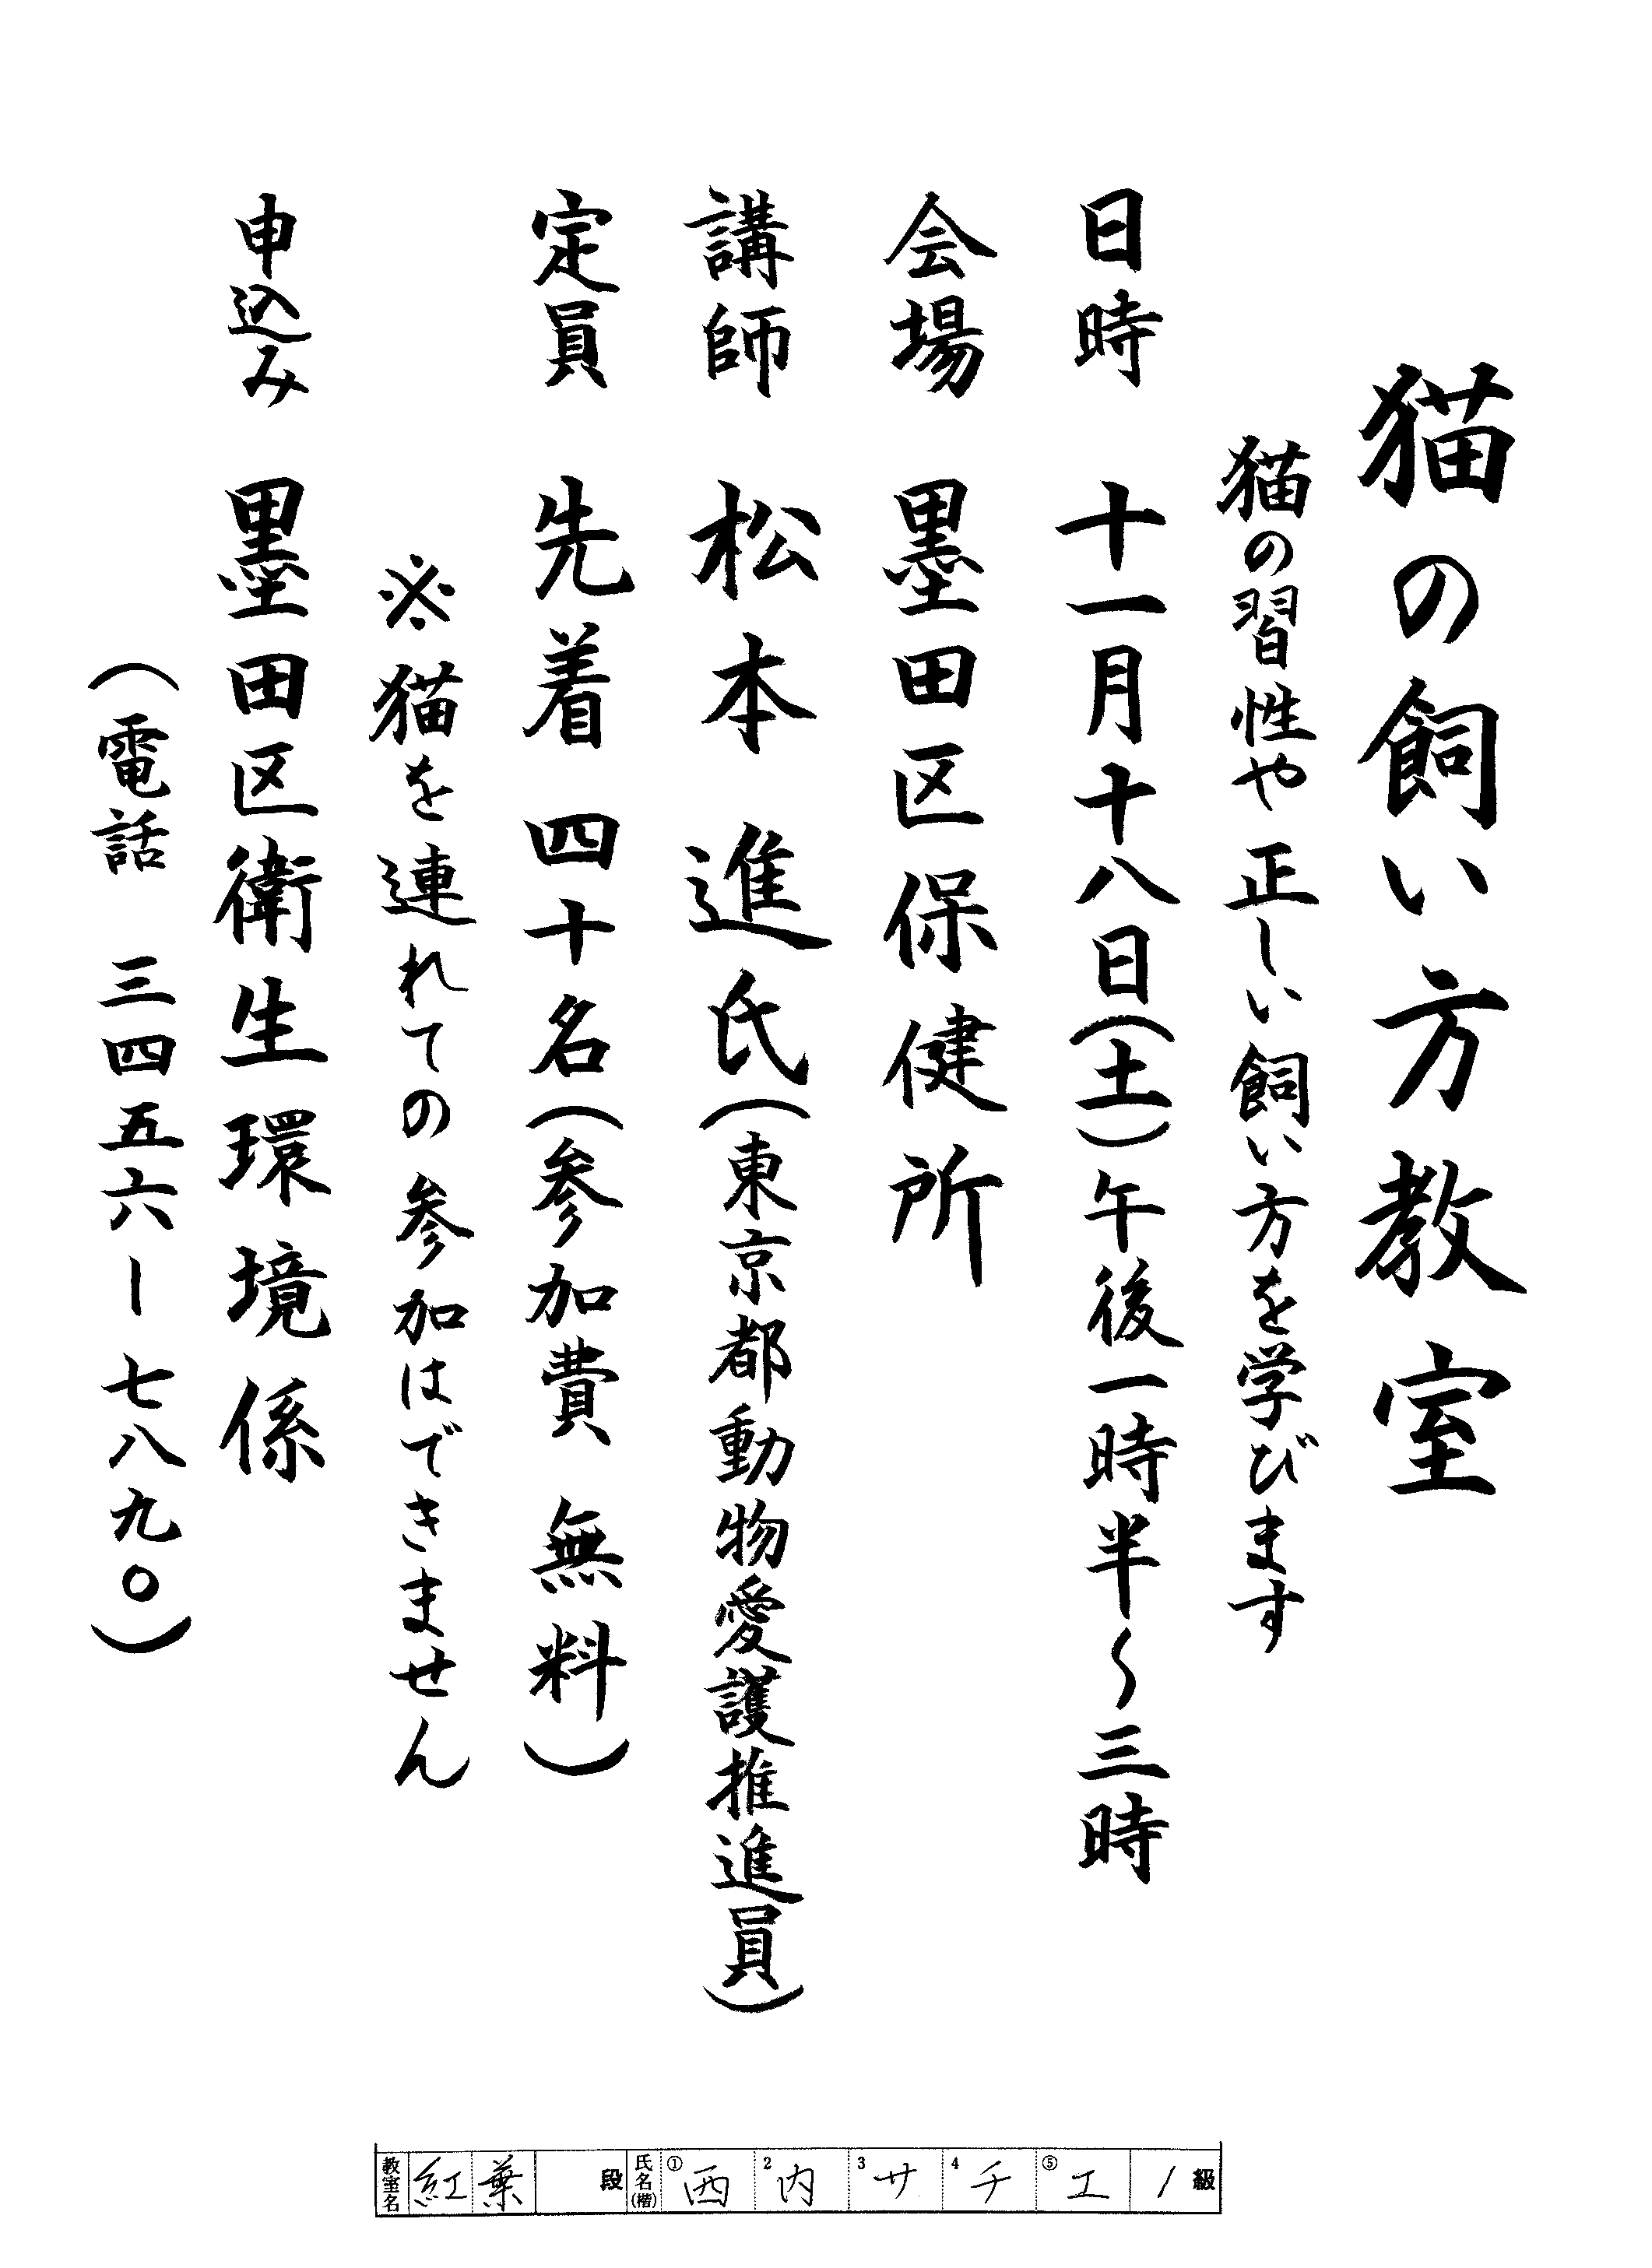 猫の飼い方教室
猫の習性や正しい飼い方を学びます
日時 十一月十八日(土)午後一時半〜三時
会場 墨田区保健所
講師 松本進氏(東京都動物愛護推進員)
定員 先着 四十名(参加費 無料)
※猫を連れての参加はできません
申込み 墨田区衛生環境係
(電話 三四五六ー七八九〇)
教室名 紅葉 段 氏名(楷) ①西 2内 3サ 4チ ⑤エ 1級